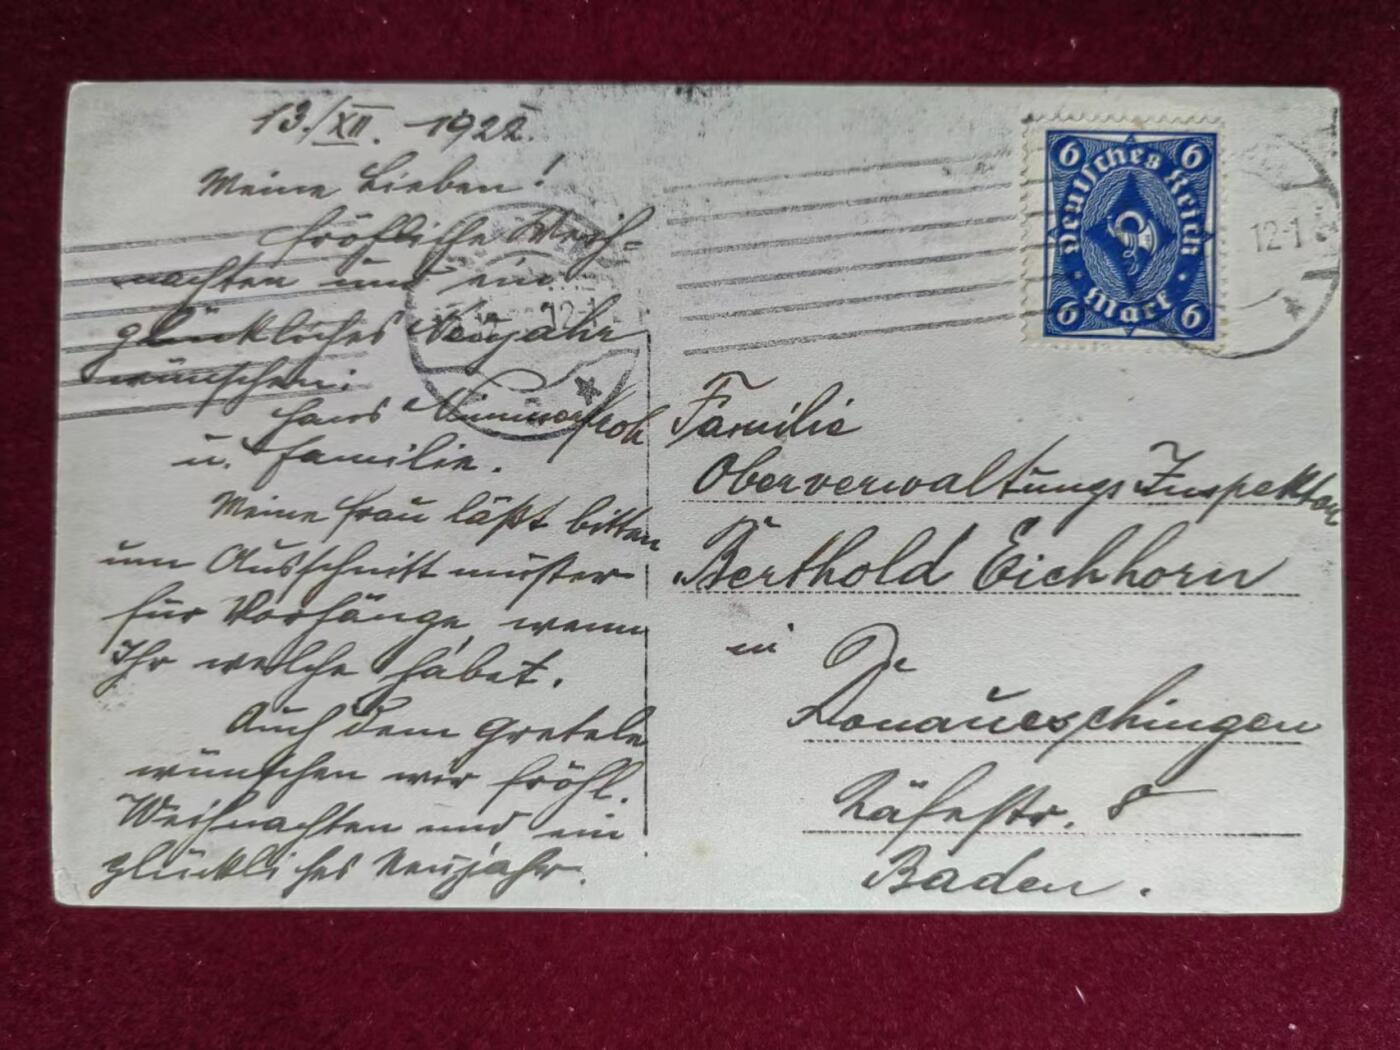 13./XII. 1922.
Meine Lieben!
Fröhliche Weih=
nachten und ein
glückliches Neujahr
wünschen:
Hans
u. Familie.
Meine Frau läßt bitten
um Ausschnittmuster
für Vorhänge, wenn
Ihr welche habet.
Auch dem Gretele
wünschen wir fröhl.
Weihnachten und ein
glückliches Neujahr.
Deutsches Reich
6 6
Mark
6 6
12-1
12-1
Familie
Oberverwaltungs Inspektor
Berthold Eichhorn
in
Donaueschingen
8
Baden.